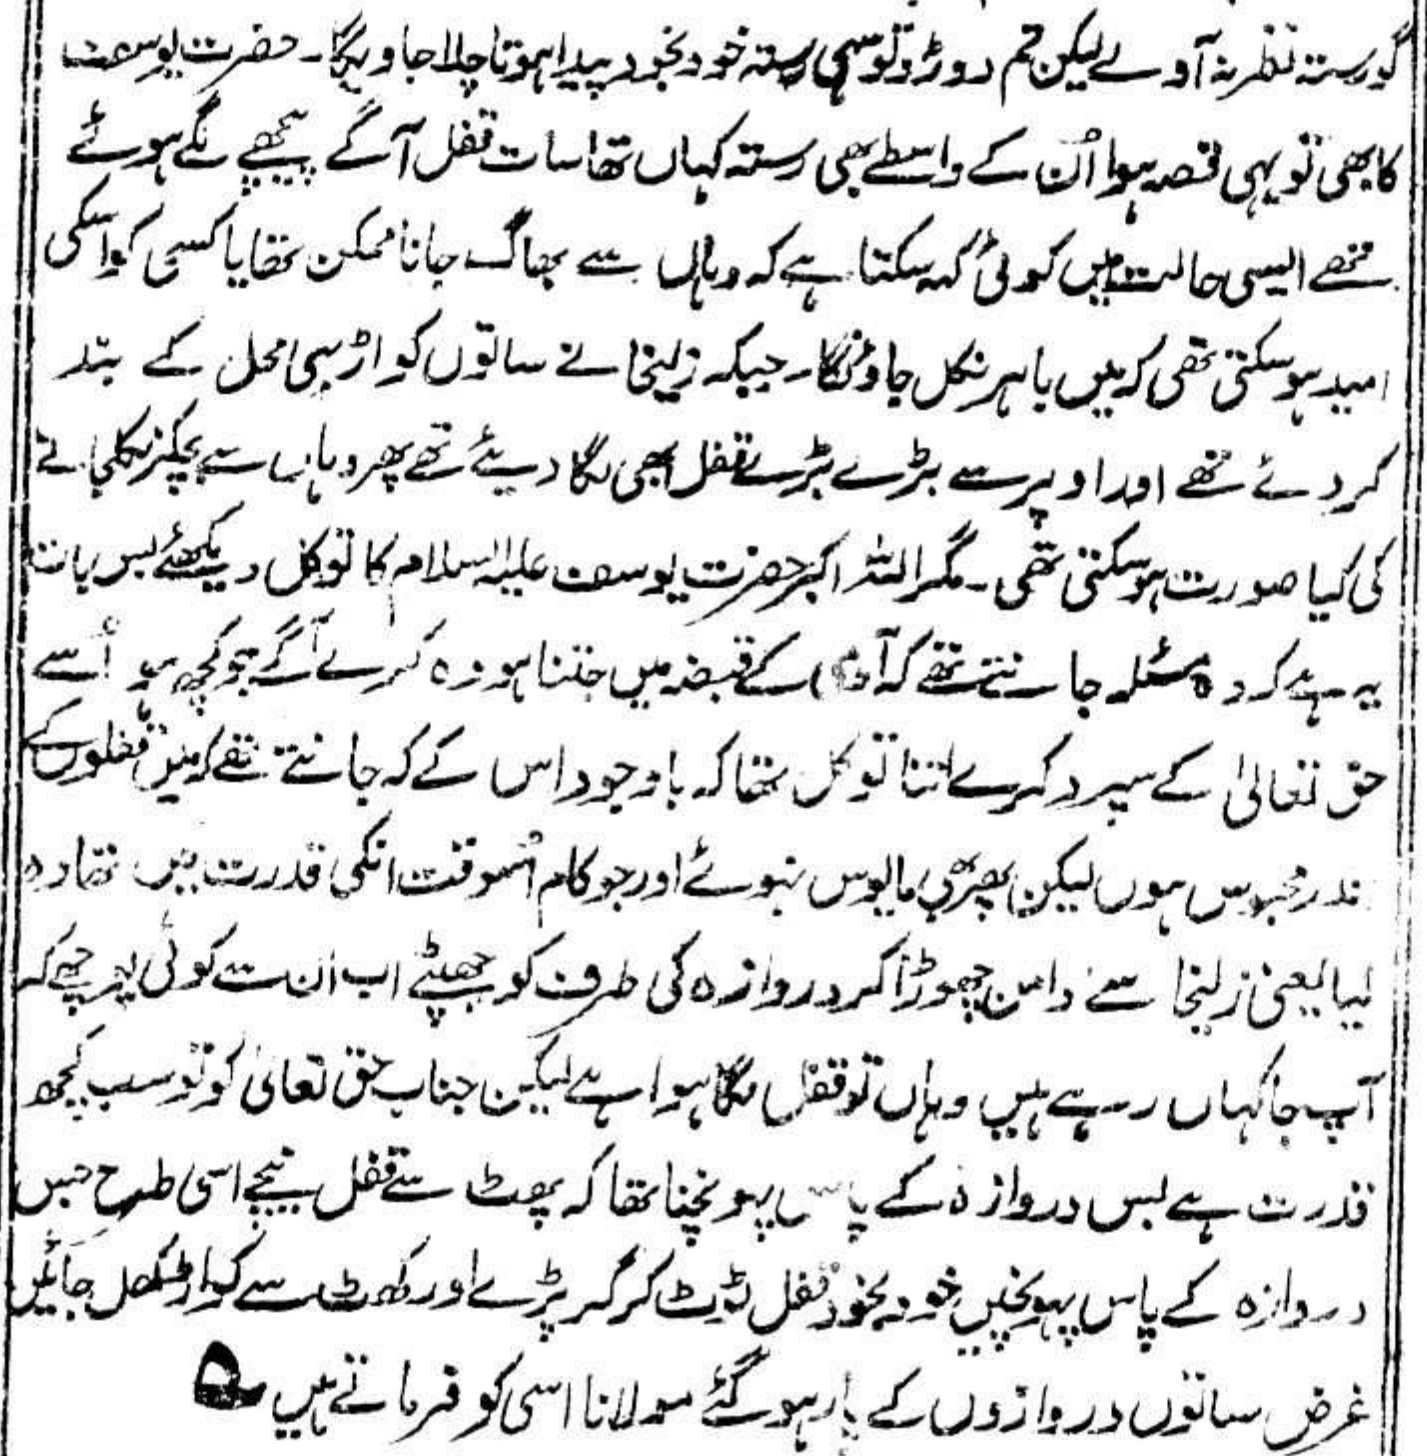 گو رستہ نظر نہ آوے لیکن تم دوڑو تو سہی رستہ خود بخود پیدا ہوتا چلا جاویگا۔ حضرت یوسف
کا بھی تو یہی قصہ ہوا اُن کے واسطے بھی رستہ کہاں تھا سات قفل آگے پیچھے لگے ہوئے
تھے ایسی حالت میں کوئی کہہ سکتا ہے کہ وہاں سے بھاگ جانا ممکن تھا یا کسی کو اسکی
امید ہو سکتی تھی کہ میں باہر نکل جاؤنگا۔ جبکہ زلیخا نے ساتوں کواڑ بھی محل کے بند
کر دئے تھے اور اوپر سے بڑے بڑے قفل بھی لگا دیئے تھے پھر وہاں سے بچکر نکلجانے
کی کیا صورت ہو سکتی تھی۔ مگر اللہ اکبر حضرت یوسف علیہ السلام کا توکل دیکھئے بس بات
یہ ہے کہ وہ مسئلہ جانتے تھے کہ آدمی کے قبضہ میں جتنا ہو وہ کرے آگے جو کچھ ہو اُسے
حق تعالیٰ کے سپرد کرے اتنا توکل تھا کہ باوجود اس کے کہ جانتے تھے کہ میں قفلوں کے
ندر محبوس ہوں لیکن پھر بھی مایوس نہوئے اور جو کام اُسوقت انکی قدرت میں تھا وہ
لیا یعنی زلیخا سے دامن چھوڑا کر دروازہ کی طرف کو جھپٹے اب ان سے کوئی پوچھے کہ
آپ جا کہاں رہے ہیں وہاں تو قفل لگا ہوا ہے لیکن جناب حق تعالیٰ کو تو سب کچھ
قدرت ہے بس دروازہ کے پاس پہونچنا تھا کہ پھٹ سے قفل نیچے اسی طرح جس
دروازہ کے پاس پہونچیں خود بخود قفل ٹوٹ کر گر پڑے اور کھٹ سے کواڑ کھل جائیں
غرض ساتوں دروازوں کے پار ہو گئے مولانا اسی کو فرماتے ہیں ؎